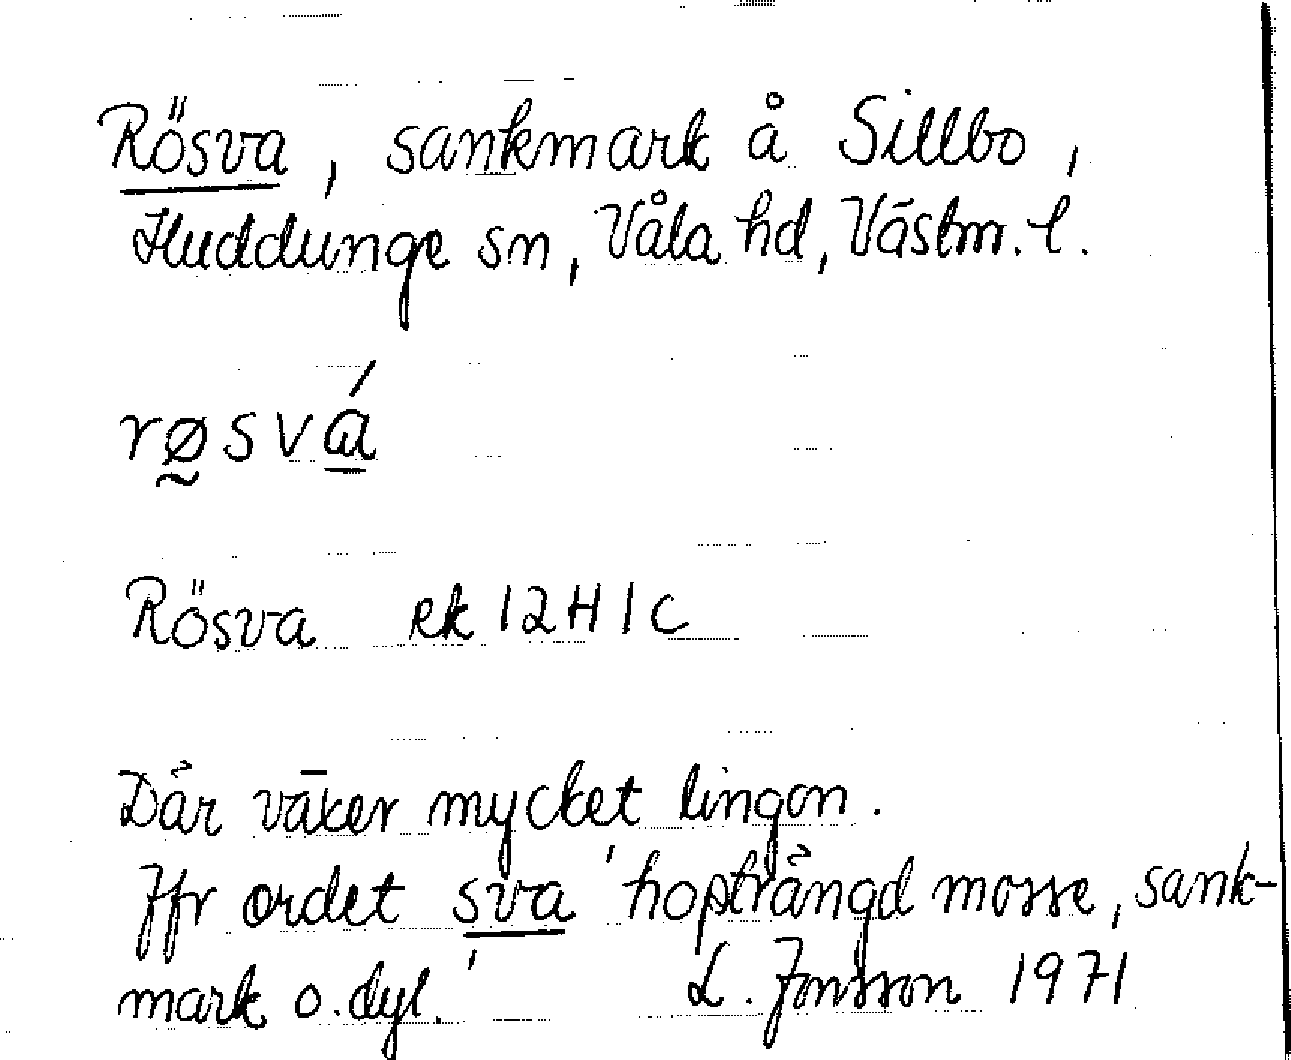 Rösva, sankmark å Sillbo,
Huddunge sn, Våla hd, Västm. l.
røsvá
Rösva ek 12H1c
Där växer mycket lingon.
Jfr ordet sva 'hopträngd mosse, sank-
mark o.dyl.' L. Jonsson 1971